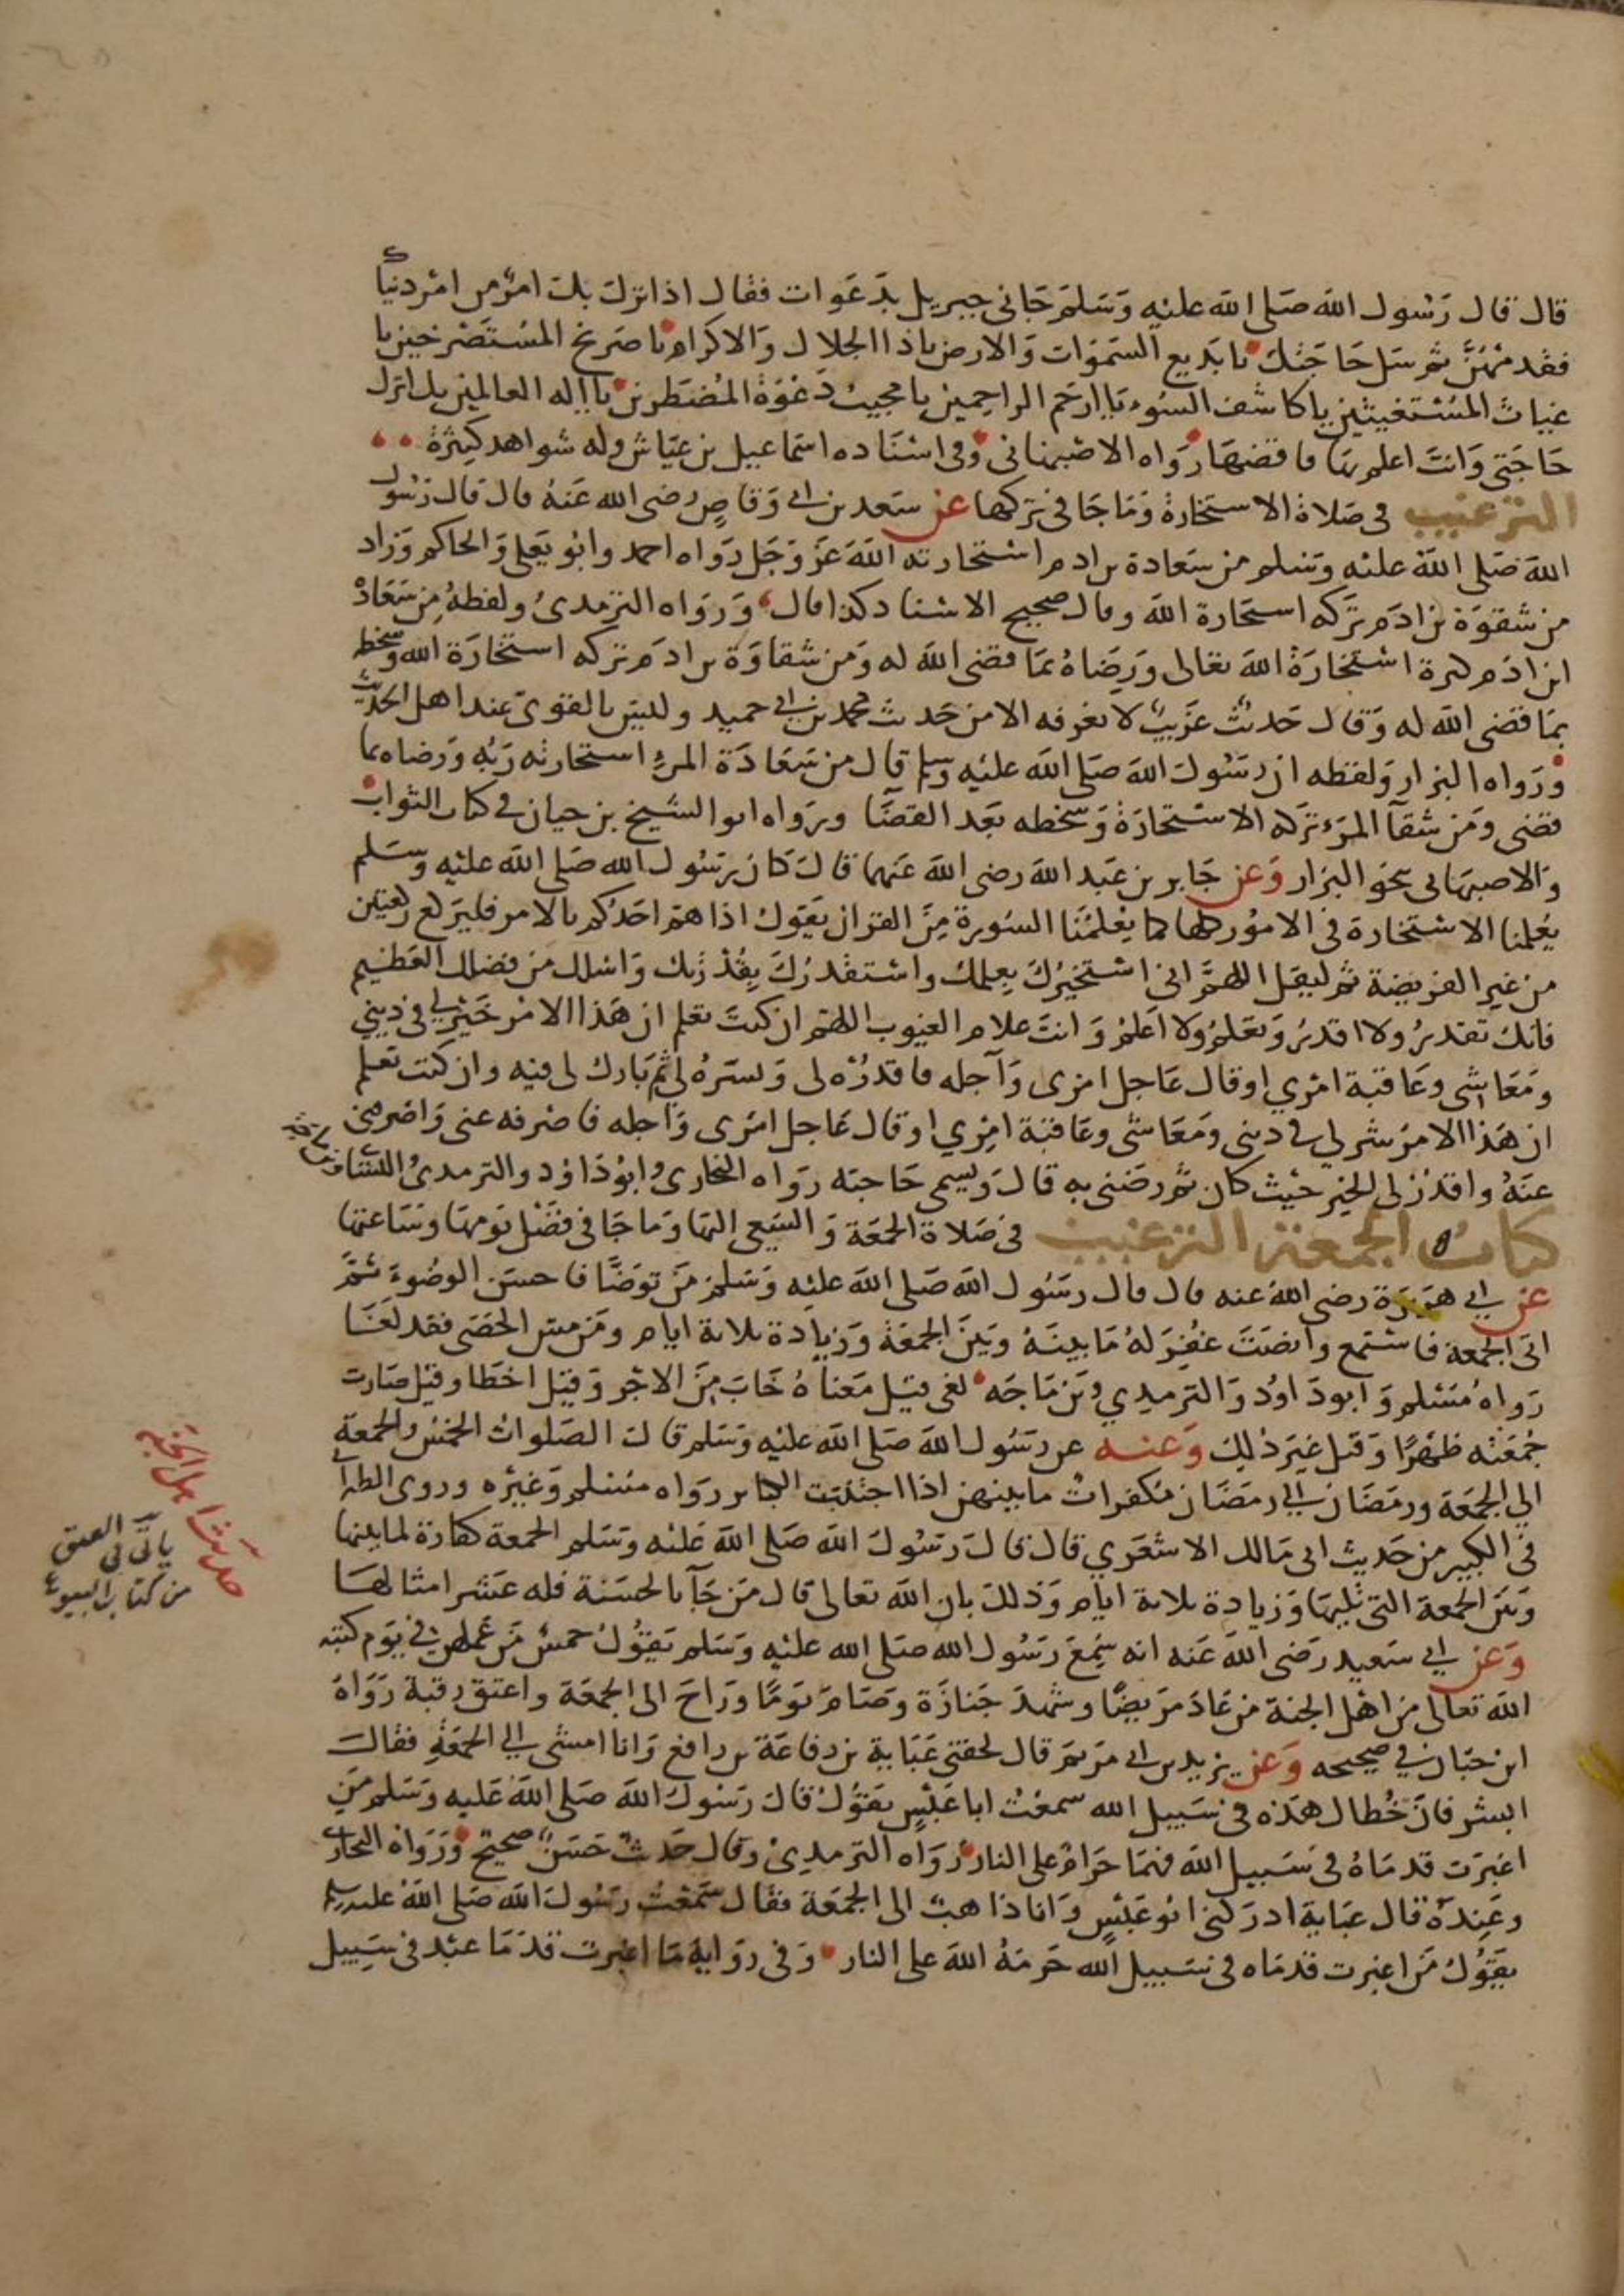 قال قال رسول الله صلى الله عليه وسلم جاني جبريل بدعوات فقال اذا نزل بك امر من امر دنياك
فقدمهن ثم سل حاجتك يا بديع السموات والارض ياذا الجلال والاكرام يا صريخ المستصرخين يا
غياث المستغيثين يا كاشف السوء يا ارحم الراحمين يا مجيب دعوة المضطرين يا اله العالمين بك انزل
حاجتي وانت اعلم بها فاقضها رواه الاصبهاني وفي اسناده اسماعيل بن عياش وله شواهد كثيرة
الترغيب في صلاة الاستخارة وما جا في تركها عن سعد بن ابي وقاص رضى الله عنه قال قال رسول
الله صلى الله عليه وسلم من سعادة بن ادم استخارته الله عز وجل رواه احمد وابو يعلى والحاكم وزاد
من شقوة بن ادم تركه استخارة الله وقال صحيح الاسناد كذا قال ورواه الترمدى ولفظه من سعادة
ابن ادم كثرة استخارة الله تعالى ورضاه بما قضى الله له ومن شقاوة بن ادم تركه استخارة الله وسخطه
بما قضى الله له وقال حديث غريب لا نعرفه الا من حديث محمد بن ابي حميد وليس بالقوى عند اهل الحديث
ورواه البزار ولفظه ان رسول الله صلى الله عليه وسلم قال من سعادة المرء استخارته ربه ورضاه بما
قضى ومن شقآ المرء تركه الاستخارة وسخطه بعد القضا ورواه ابو الشيخ بن حيان في كتاب الثواب
والاصبهاني بنحو البزار وعن جابر بن عبد الله رضى الله عنهما قال كان رسول الله صلى الله عليه وسلم
يعلمنا الاستخارة في الامور كلها كما يعلمنا السورة من القران يقول اذا هم احدكم بالامر فليركع ركعتين
من غير الفريضة ثم ليقل اللهم اني استخيرك بعلمك واستقدرك بقدرتك واسالك من فضلك العظيم
فانك تقدر ولا اقدر وتعلم ولا اعلم وانت علام الغيوب اللهم ان كنت تعلم ان هذا الامر خير لي في ديني
ومعاشى وعاقبة امري او قال عاجل امرى وآجله فاقدره لى ويسره لي ثم بارك لى فيه وان كنت تعلم
ان هذا الامر شر لي في دينى ومعاشى وعاقبة امري او قال عاجل امرى واجله فاصرفه عنى واصرفني
عنه واقدر لى الخير حيث كان ثم رضنى به قال ويسمى حاجته رواه البخارى وابو داود والترمدى والنساى
كتاب الجمعة الترغيب في صلاة الجمعة والسعى اليها وما جا في فضل يومها وساعتها
عن ابي هريرة رضى الله عنه قال قال رسول الله صلى الله عليه وسلم من توضا فاحسن الوضوء ثم
اتى الجمعة فاستمع وانصت غفر له ما بينه وبين الجمعة وزيادة ثلاثة ايام ومن مس الحصى فقد لغا
رواه مسلم وابو داود والترمدي وبن ماجه لغى قيل معناه خاب من الاجر وقيل اخطا وقيل صارت
جمعته ظهرا وقيل غير ذلك وعنه عن رسول الله صلى الله عليه وسلم قال الصلوات الخمس والجمعة
الي الجمعة ورمضان الي رمضان مكفرات ما بينهن اذا اجتنبت الكبائر رواه مسلم وغيره وروى الطبرا
في الكبير من حديث ابى مالك الاشعري قال قال رسول الله صلى الله عليه وسلم الجمعة كفارة لما بينها
وبين الجمعة التي تليها وزيادة ثلاثة ايام وذلك بان الله تعالى قال من جآ بالحسنة فله عشر امثالها
وعن ابي سعيد رضى الله عنه انه سمع رسول الله صلى الله عليه وسلم يقول خمس من عملهن في يوم كتبه
الله تعالى من اهل الجنة من عاد مريضا وشهد جنازة وصام يوما وراح الى الجمعة واعتق رقبة رواه
ابن حبان في صحيحه وعن يزيد بن ابي مريم قال لحقني عباية بن رفاعة بن رافع وانا امشى الي الجمعة فقال
ابشر فان خطاك هذه في سبيل الله سمعت ابا عبس يقول قال رسول الله صلى الله عليه وسلم من
اغبرت قدماه في سبيل الله فهما حرام على النار رواه الترمدي وقال حديث حسن صحيح ورواه البخارى
وعنده قال عباية ادركني ابو عبس وانا ذاهب الى الجمعة فقال سمعت رسول الله صلى الله عليه وسلم
يقول من اغبرت قدماه في سبيل الله حرمه الله على النار وفى رواية ما اغبرت قدما عبد في سبيل
حديث اهل الجنة
ياتي في العتق
من كتاب البيوع